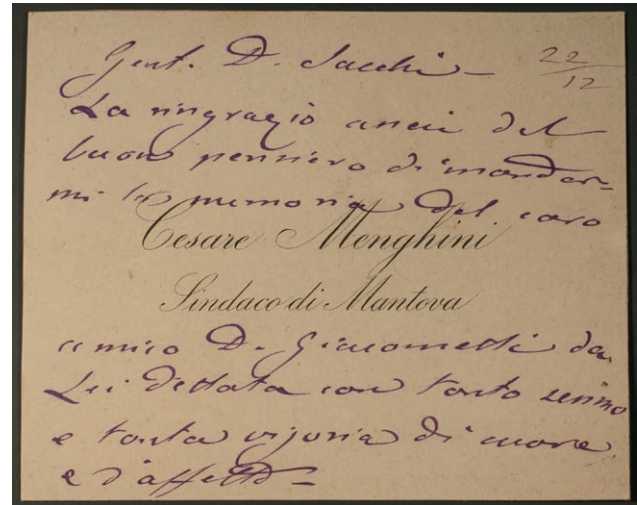 Gent. D. Sacchi -
22/12
La ringrazio del
buon pensiero di mandar-
mi la memoria del caro
Cesare Menghini
Sindaco di Mantova
amico D. Giacometti da
Lei dettata con tanto senno
e tanta vigoria di cuore
e d'affetto -